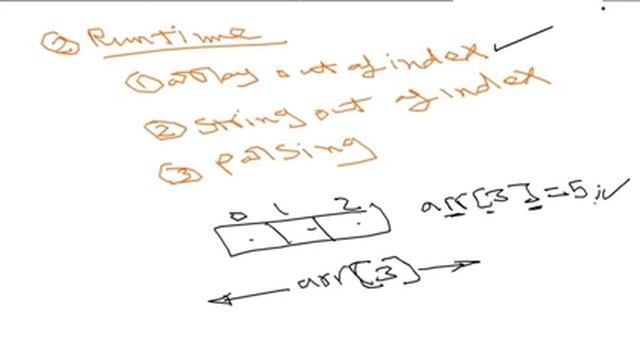 ② Runtime
① array out of index
② string out of index
③ parsing
0 1 2
arr[3]=5;
arr[3]